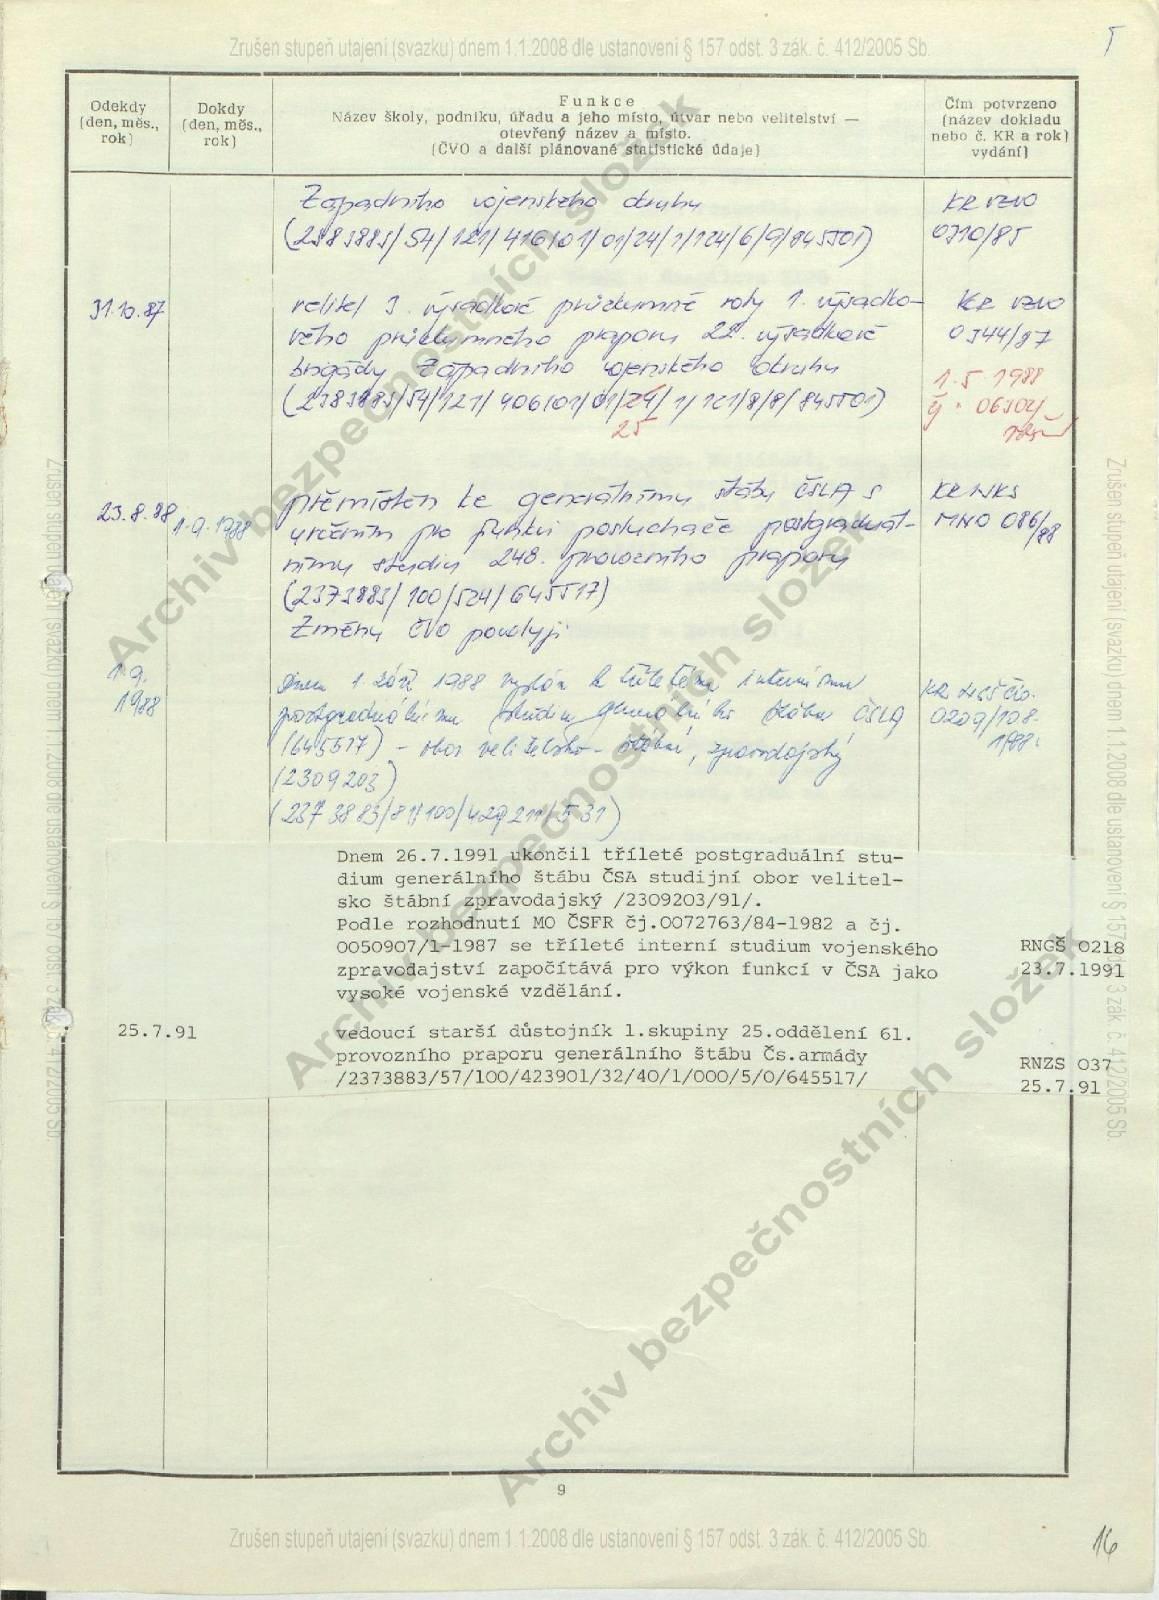 Zrušen stupeň utajení (svazku) dnem 1.1.2008 dle ustanovení § 157 odst. 3 zák. č. 412/2005 Sb.
Odekdy
(den, měs.,
rok)
Dokdy
(den, měs.,
rok)
Funkce
Název školy, podniku, úřadu a jeho místo, útvar nebo velitelství —
otevřený název a místo.
(ČVO a další plánované statistické údaje)
Čím potvrzeno
(název dokladu
nebo č. KR a rok)
vydání)
Západního vojenského okruhu
KR VZVO
0710/85
31.10.87
velitel 3. výsadkové průzkumné roty 1. výsadko-
vého průzkumného praporu 22. výsadkové
brigády Západního vojenského okruhu
KR VZVO
25
1.5.1988
23.8.88
1.9.1988
přemístěn ke generálnímu štábu ČSLA s
určením pro funkci posluchače postgraduál-
nímu studiu 248. provozního praporu
(2373883/100/524/645517)
Změnu ČVO povoluji
MNO 086/88
1.9.
1988
Dnem 1. září 1988 vyslán k tříletému internímu
postgraduálnímu studiu generálního štábu ČSLA
(645517) - obor velitelsko-štábní, zpravodajský
(2309203)
0209/108-
1988.
Dnem 26.7.1991 ukončil tříleté postgraduální stu-
dium generálního štábu ČSA studijní obor velitel-
sko štábní zpravodajský /2309203/91/.
Podle rozhodnutí MO ČSFR čj.0072763/84-1982 a čj.
0050907/1-1987 se tříleté interní studium vojenského
zpravodajství započítává pro výkon funkcí v ČSA jako
vysoké vojenské vzdělání.
RNGŠ 0218
23.7.1991
25.7.91
vedoucí starší důstojník 1.skupiny 25.oddělení 61.
provozního praporu generálního štábu Čs.armády
/2373883/57/100/423901/32/40/1/000/5/0/645517/
RNZS 037
25.7.91
9
Zrušen stupeň utajení (svazku) dnem 1.1.2008 dle ustanovení § 157 odst. 3 zák. č. 412/2005 Sb.
16
Zrušen stupeň utajení (svazku) dnem 1.1.2008 dle ustanovení § 157 odst. 3 zák. č. 412/2005 Sb.
Zrušen stupeň utajení (svazku) dnem 1.1.2008 dle ustanovení § 157 odst. 3 zák. č. 412/2005 Sb.
Archiv bezpečnostních složek
Archiv bezpečnostních složek
Archiv bezpečnostních složek